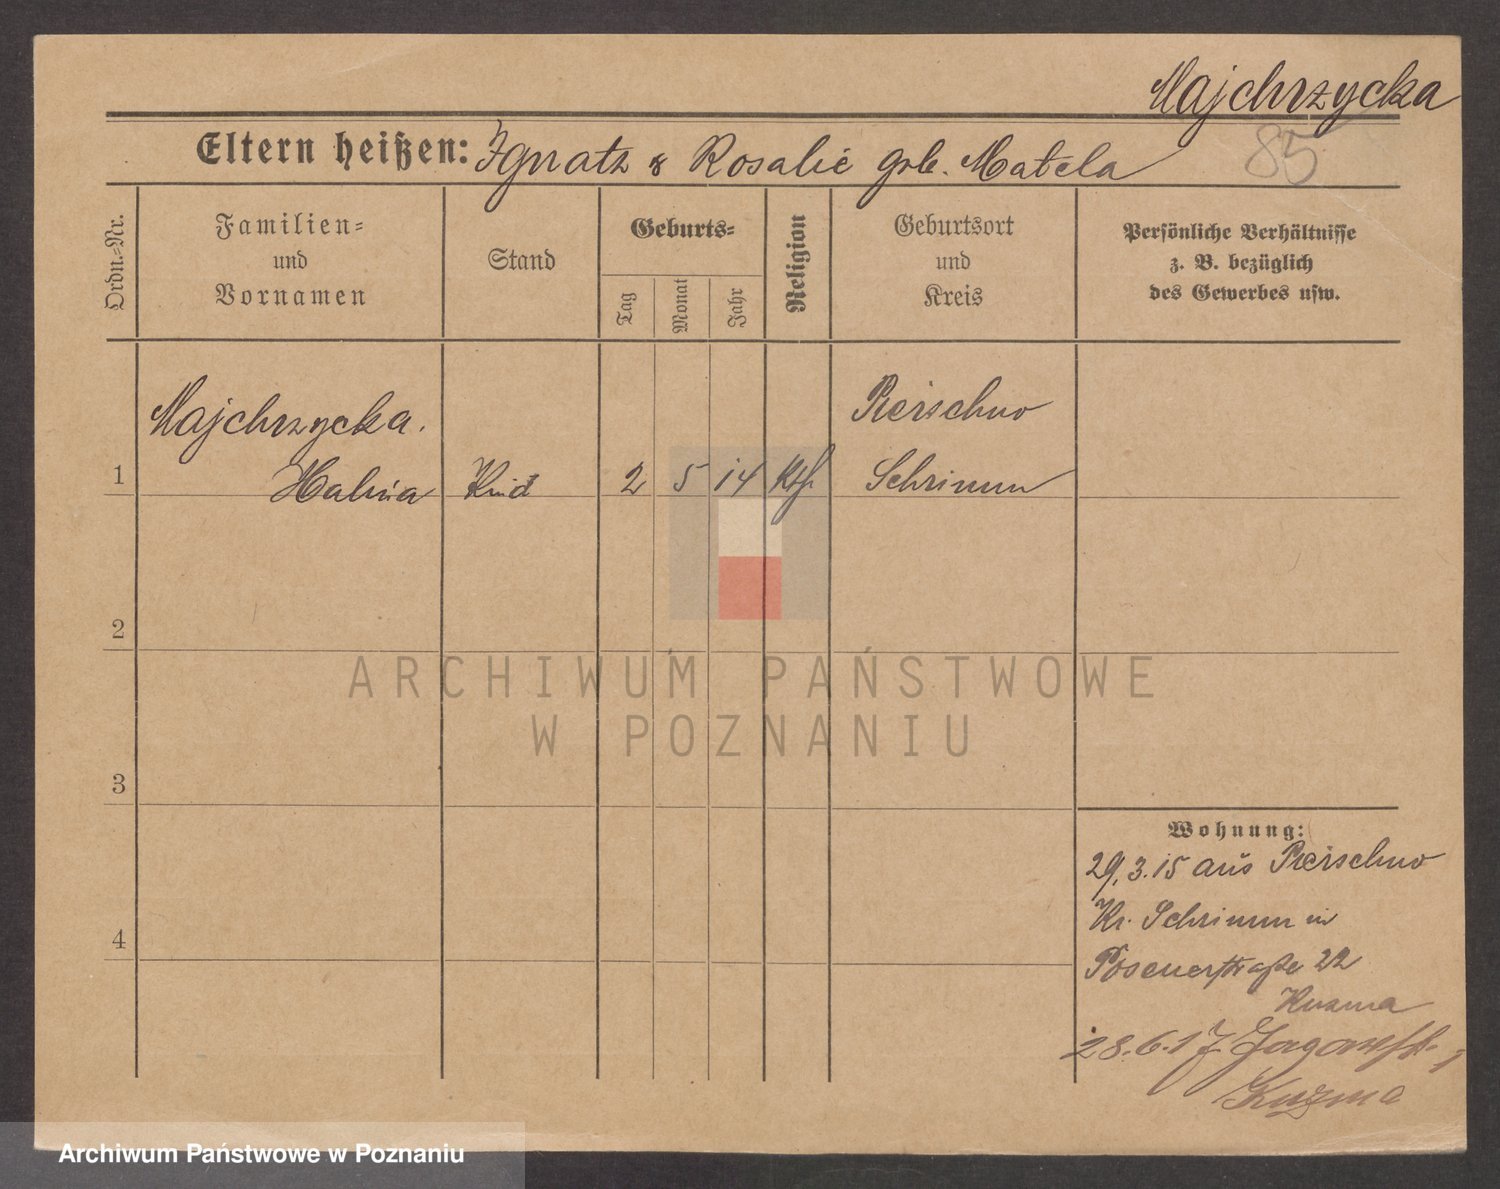 Majchrzycka
85
Eltern heißen: Ignatz & Rosalie geb. Matela
Ordn.-Nr.
Familien-
und
Vornamen
Stand
Geburts-
Tag
Monat
Jahr
Religion
Geburtsort
und
Kreis
Persönliche Verhältnisse
z. B. bezüglich
des Gewerbes usw.
Majchrzycka.
Pierschno
1 Halina Kind 2 5 14 Kth Schrimm
2
3
4
Wohnung:
29.3.15 aus Pierschno
Kr. Schrimm in
Posenerstraße 22
Kuzma
28.6.17 Jagowstr. 1
Kuzma
ARCHIWUM PAŃSTWOWE
W POZNANIU
Archiwum Państwowe w Poznaniu